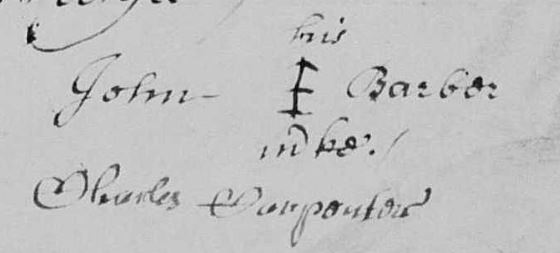 his
John Barber
m̃ke./
Charles Carpenter